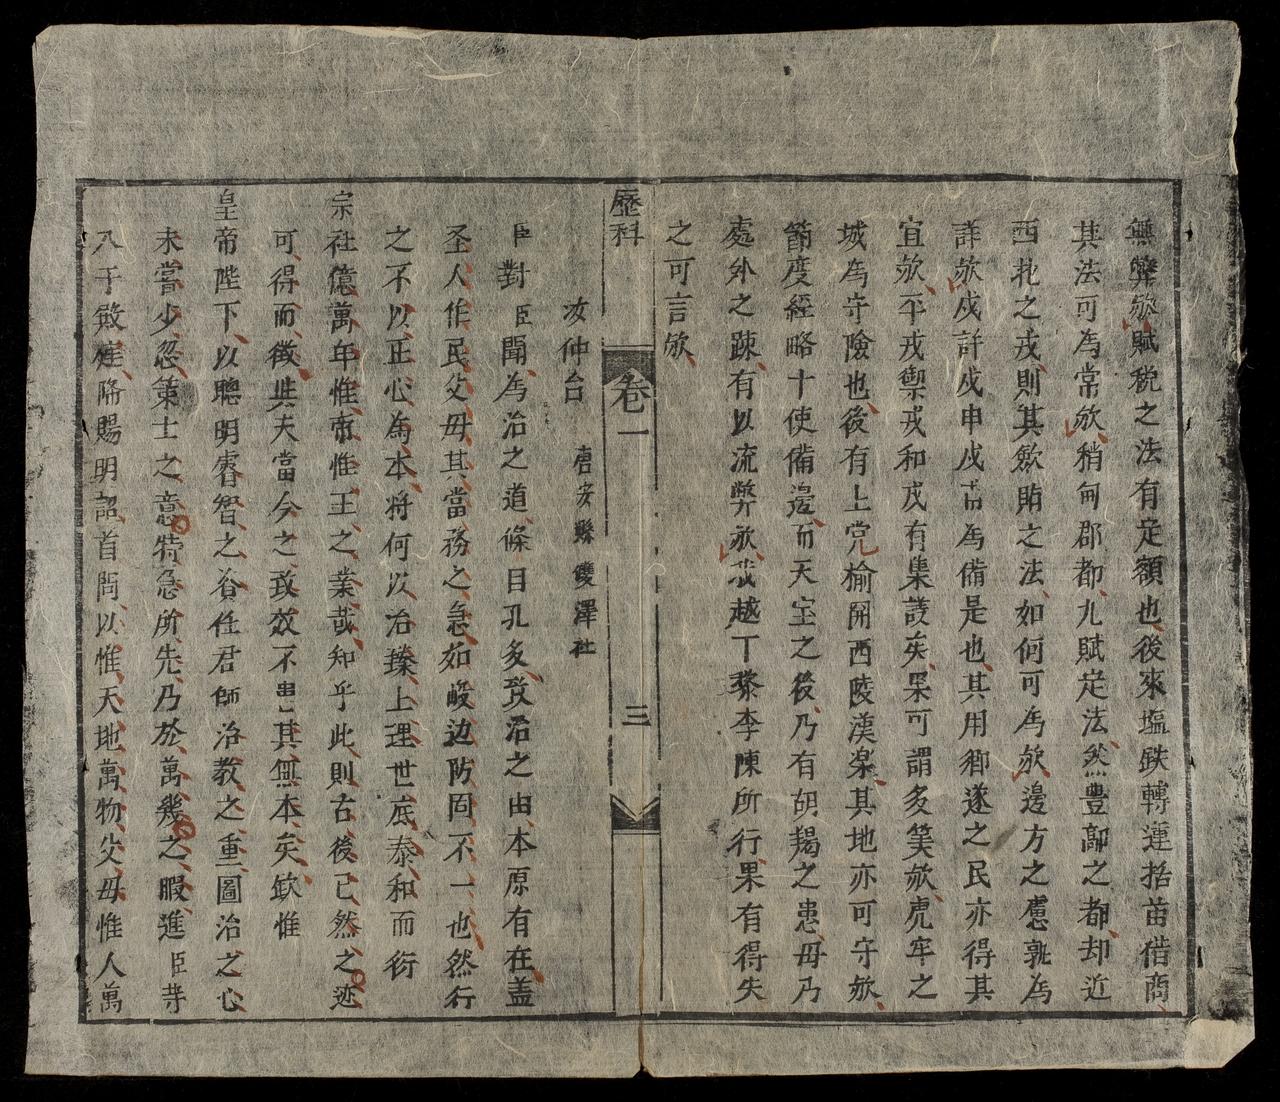 無弊欤賦稅之法有定額也後來塩鉄轉運括苗借商
其法可為常欤稍甸郡都九賦定法然豊鄗之都却近
西北之戎則其歛賄之法如何可為欤邊方之慮孰為
詳欤戍許戍申戍甫為備是也其用鄉遂之民亦得其
宜欤平戎禦戎和戎有集議矣果可謂多筭欤虎牢之
城為守險也後有上党榆関西陵漢樂其地亦可守欤
節度經略十使備邊而天宝之後乃有胡羯之患毋乃
處外之踈有以流弊欤我越丁黎李陳所行果有得失
之可言欤
歷科
卷一
三
汝仲台 唐安縣 雙澤社
臣對臣聞為治之道條目孔多致治之由本原有在盖
圣人作民父母其當務之急如峻边防固不一也然行
之不以正心為本將何以治臻上理世底泰和而衍
宗社億萬年惟帝惟王之業哉知乎此則古後已然之迹
可得而徵矣夫當今之致效不患其無本矣欽惟
皇帝陛下以聰明睿智之為任君師治教之重圖治之心
未嘗少忽策士之意特急所先乃於萬幾之暇進臣等
入于敬庭降賜明詔首問以惟天地萬物父母惟人萬